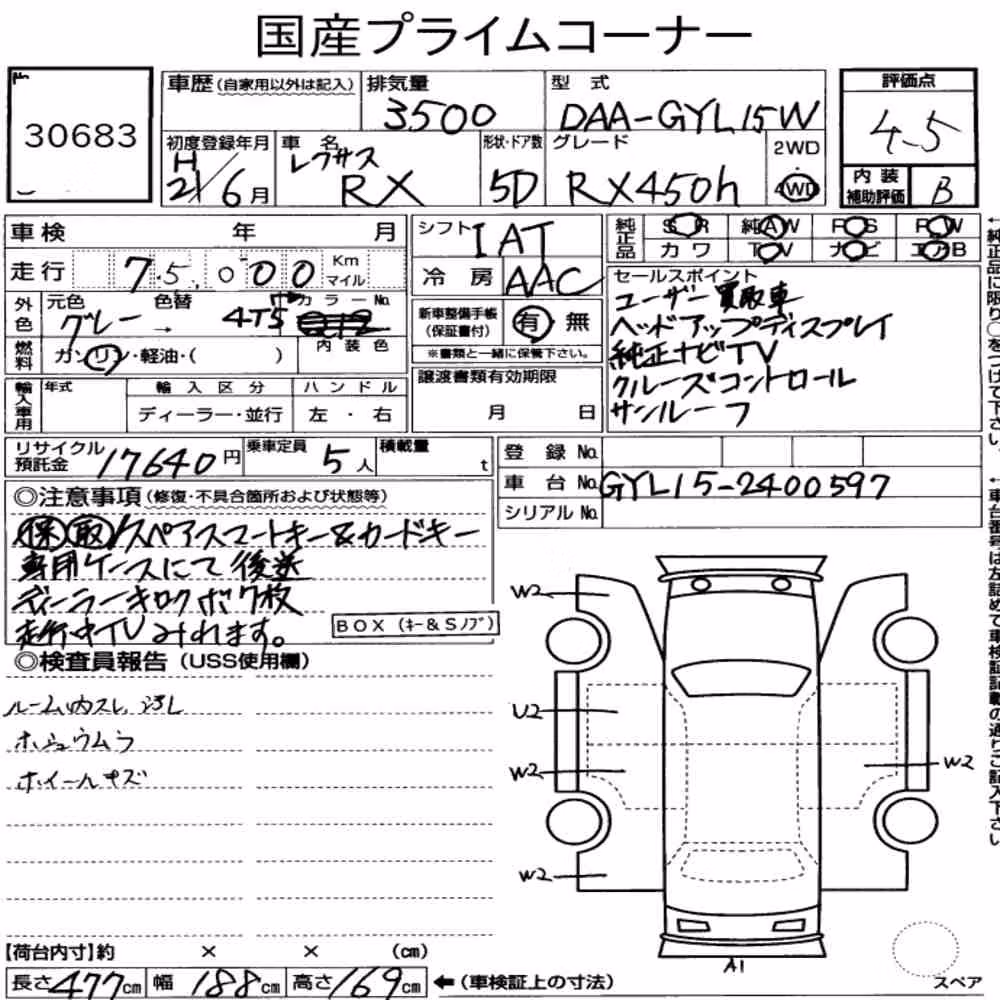 国産プライムコーナー
No.
30683
車歴 (自家用以外は記入)
排気量
3500
型 式
DAA-GYL15W
評価点
4.5
初度登録年月
H
21/6月
車 名
レクサス
RX
形状・ドア数
5D
グレード
RX450h
2WD
4WD
内 装
補助評価
B
車検 年 月
走行 7 5,000 Km
マイル
シフト IAT
冷 房 AAC
純正品
SR 純AW PS PW
カワ TV ナビ エアB
外色
元色 色替 カラーNo.
グレー → 4T5
内 装 色
燃料
ガソリン・軽油・( )
新車整備手帳
(保証書付)
有 無
※書類と一緒に保管下さい。
セールスポイント
ユーザー買取車
ヘッドアップディスプレイ
純正ナビTV
クルーズコントロール
サンルーフ
輸入車用
年式
輸 入 区 分
ハ ン ド ル
ディーラー・並行
左 ・ 右
譲渡書類有効期限
月 日
リサイクル
預託金
17640円
乗車定員
5人
積載量
t
登 録 No.
車 台 No. GYL15-2400597
シリアル No.
◎注意事項(修復・不具合箇所および状態等)
保 取 スペアスマートキー&カードキー
専用ケースにて後送
ディーラーキロクボ7枚
走行中TVみれます。
BOX (キー&Sノブ)
◎検査員報告 (USS使用欄)
ルーム内スレ
ホイールキズ
W2
U2
W2
W2
W2
A1
スペア
【荷台内寸】約 × × (cm)
長さ 477cm 幅 188cm 高さ 169cm ←(車検証上の寸法)
←純正品に限り○をつけて下さい。
←車台番号は左詰めで車検証記載の通りご記入下さい